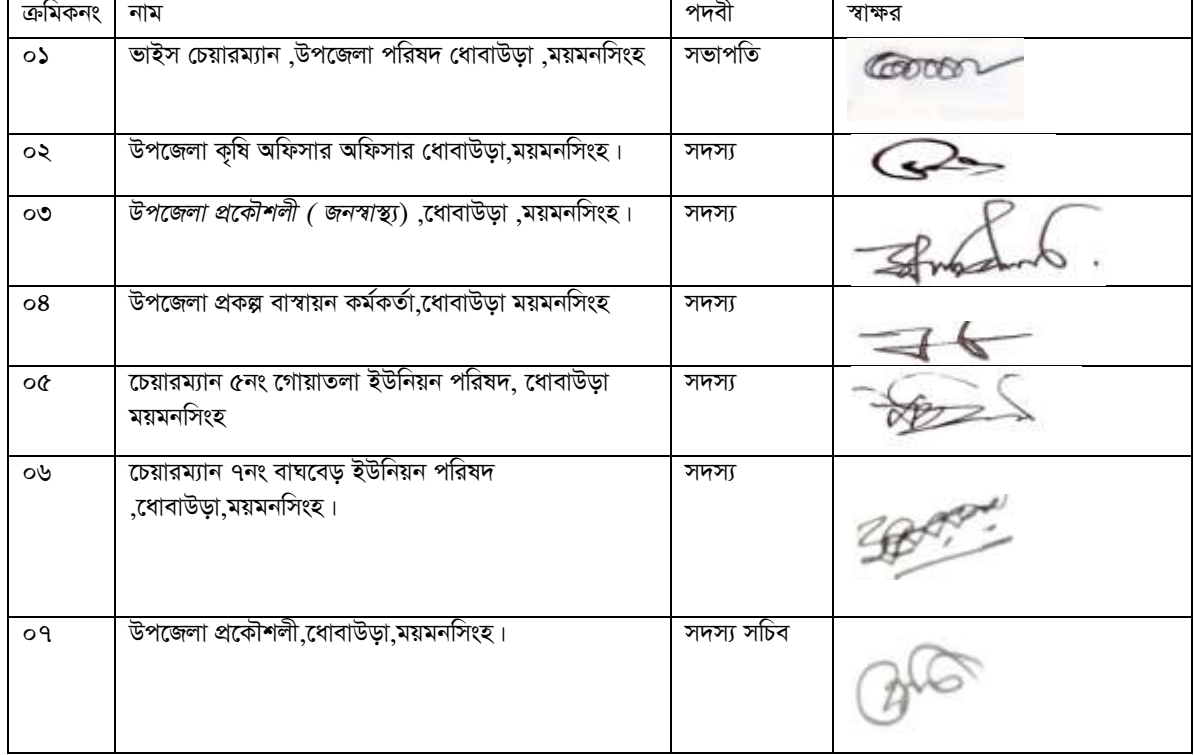 ক্রমিকনং নাম পদবী স্বাক্ষর
০১ ভাইস চেয়ারম্যান ,উপজেলা পরিষদ ধোবাউড়া ,ময়মনসিংহ সভাপতি
০২ উপজেলা কৃষি অফিসার অফিসার ধোবাউড়া,ময়মনসিংহ। সদস্য
০৩ উপজেলা প্রকৌশলী ( জনস্বাস্থ্য) ,ধোবাউড়া ,ময়মনসিংহ। সদস্য
০৪ উপজেলা প্রকল্প বাস্বায়ন কর্মকর্তা,ধোবাউড়া ময়মনসিংহ সদস্য
০৫ চেয়ারম্যান ৫নং গোয়াতলা ইউনিয়ন পরিষদ, ধোবাউড়া সদস্য
ময়মনসিংহ
০৬ চেয়ারম্যান ৭নং বাঘবেড় ইউনিয়ন পরিষদ সদস্য
,ধোবাউড়া,ময়মনসিংহ।
০৭ উপজেলা প্রকৌশলী,ধোবাউড়া,ময়মনসিংহ। সদস্য সচিব